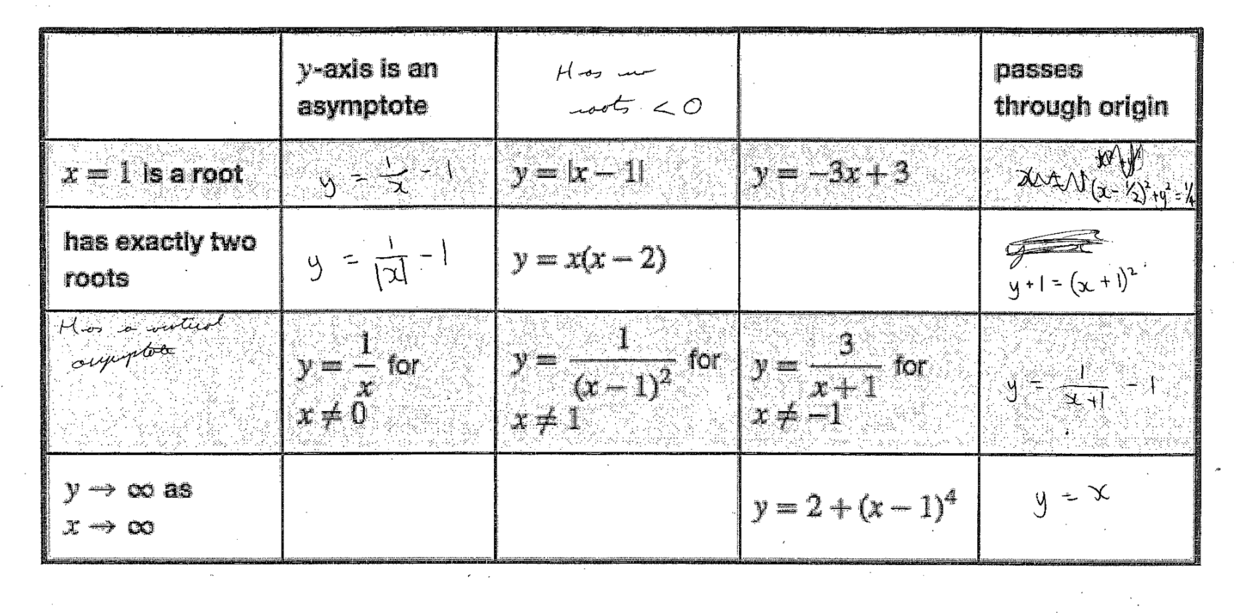 y-axis is an
asymptote
Has no
roots < 0
passes
through origin
x = 1 is a root
y = 1/x - 1
y = |x - 1|
y = -3x + 3
(x - 1/2)² + y² = 1/4
has exactly two
roots
y = 1/|x| - 1
y = x(x - 2)
y + 1 = (x + 1)²
Has a vertical
asymptote
y = 1/x for
x ≠ 0
y = 1/(x - 1)² for
x ≠ 1
y = 3/(x + 1) for
x ≠ -1
y = 1/(x+1) - 1
y → ∞ as
x → ∞
y = 2 + (x - 1)⁴
y = x